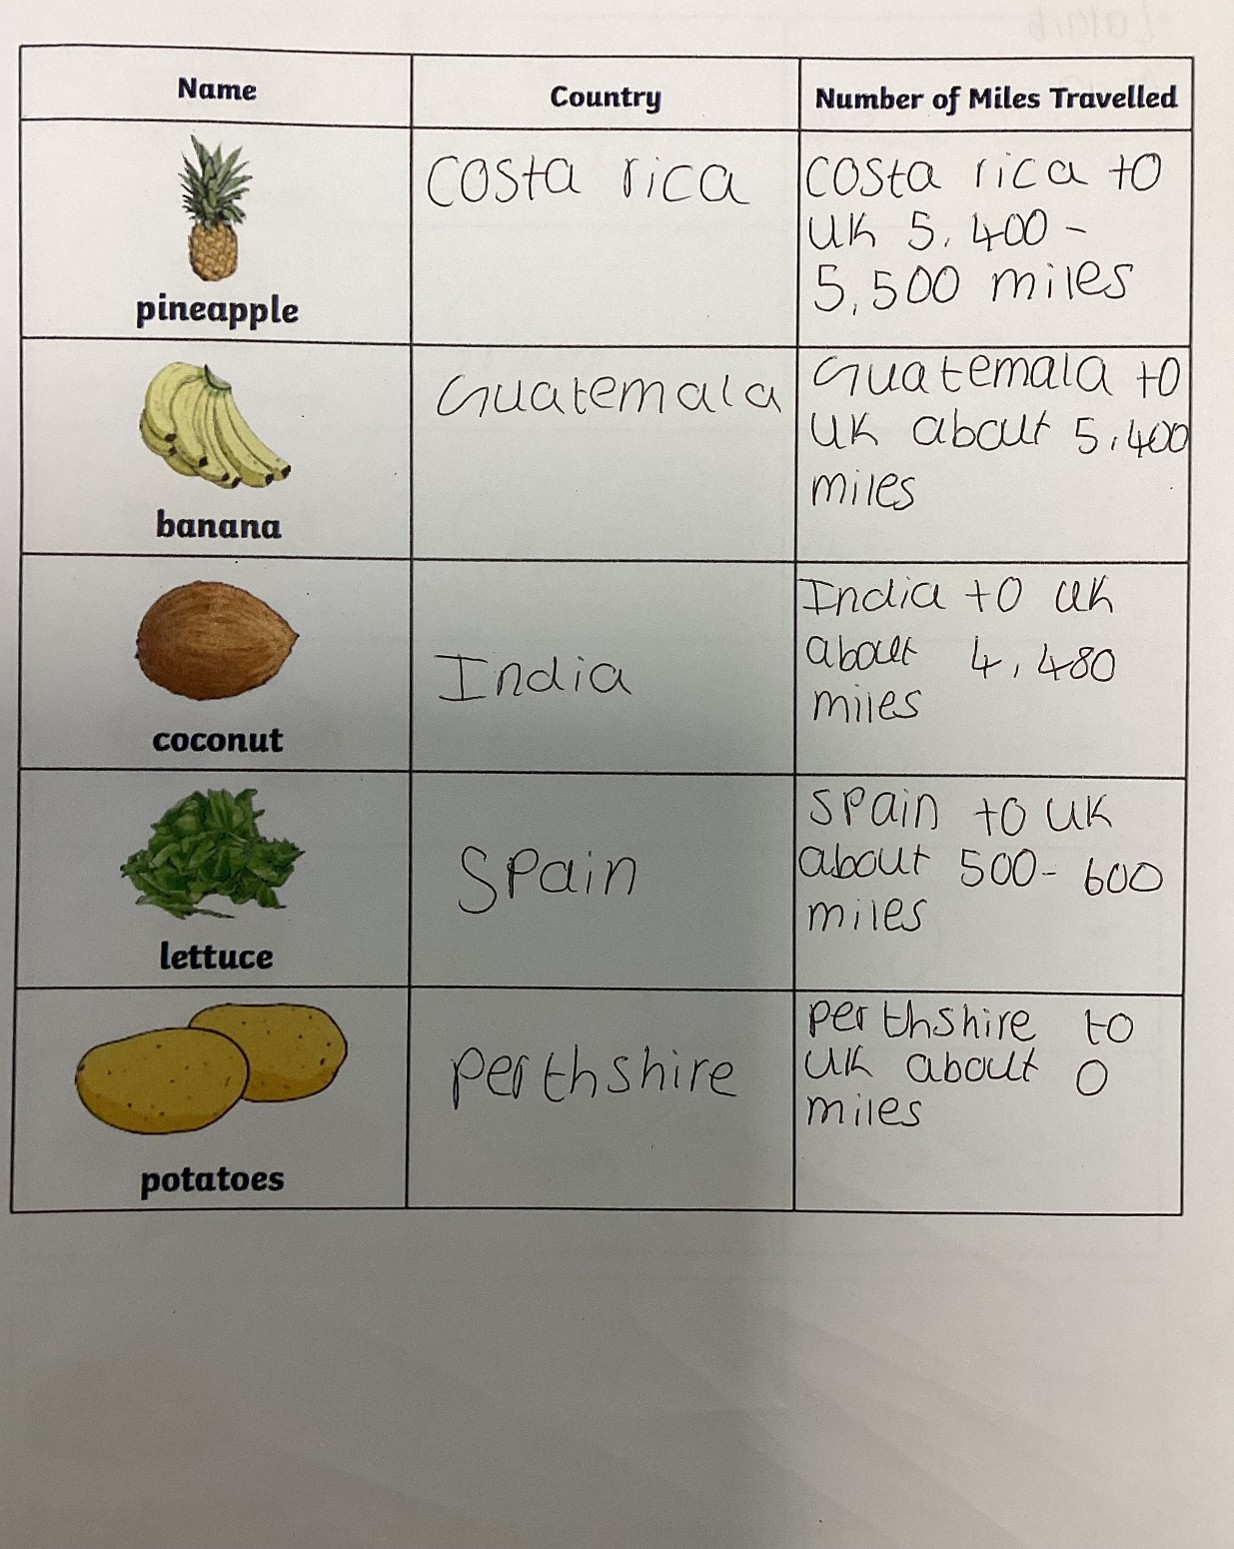 Name Country Number of Miles Travelled
pineapple
Costa rica
Costa rica to
UK 5,400 -
5,500 miles
banana
Guatemala
Guatemala to
UK about 5,400
miles
coconut
India
India to UK
about 4,480
miles
lettuce
Spain
Spain to UK
about 500- 600
miles
potatoes
Perthshire
Perthshire to
UK about 0
miles